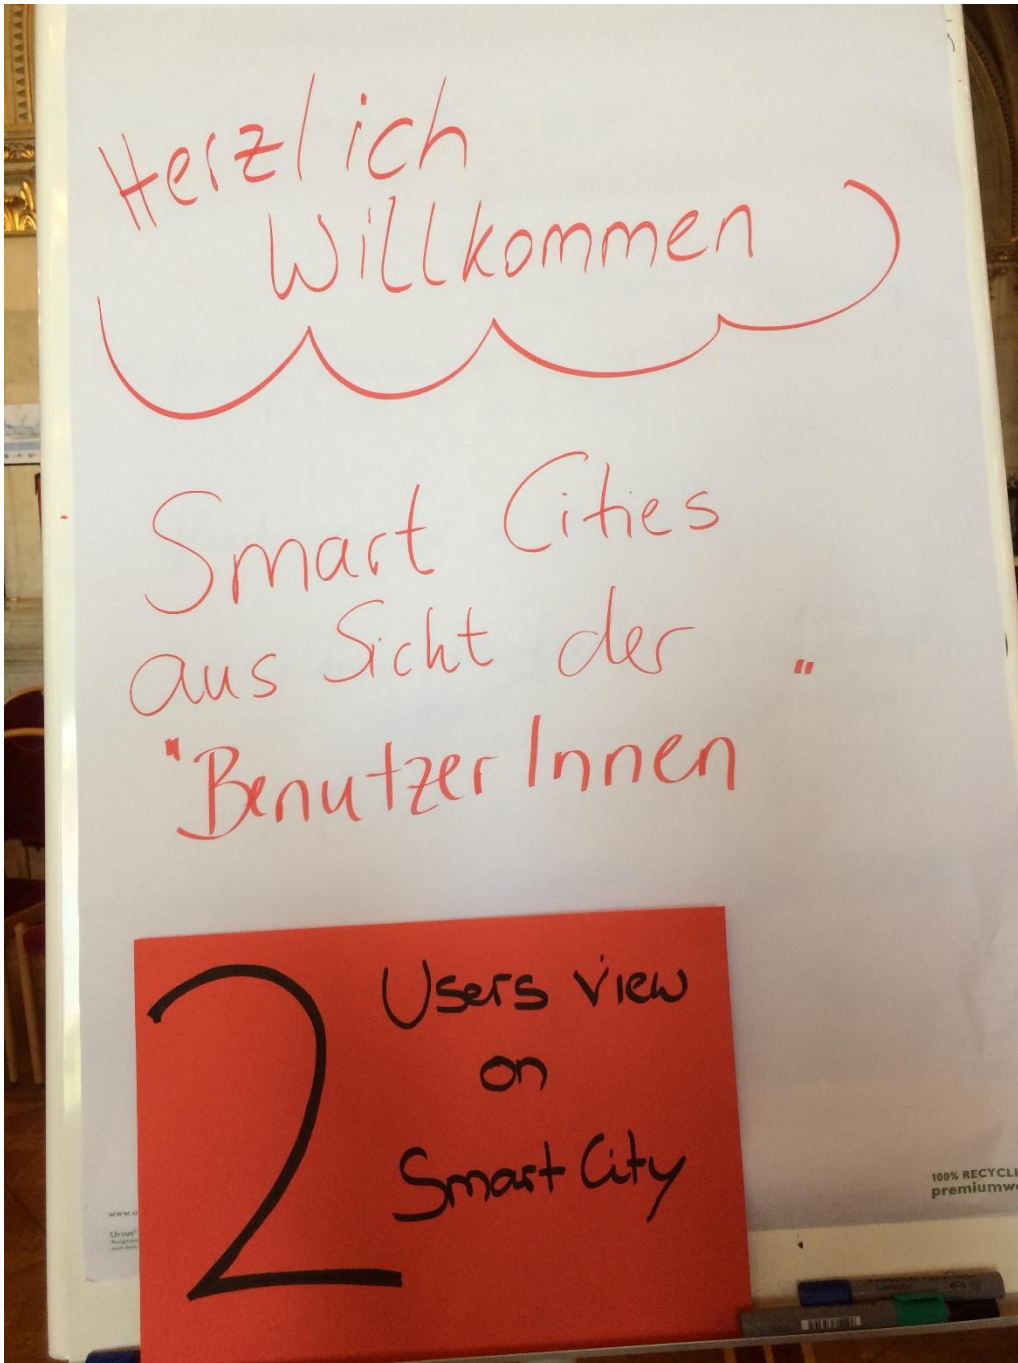 Herzlich
Willkommen
Smart Cities
aus Sicht der
"BenutzerInnen"
2
Users view
on
Smart City
100% RECYCL
premiumw
www.u
Ursus